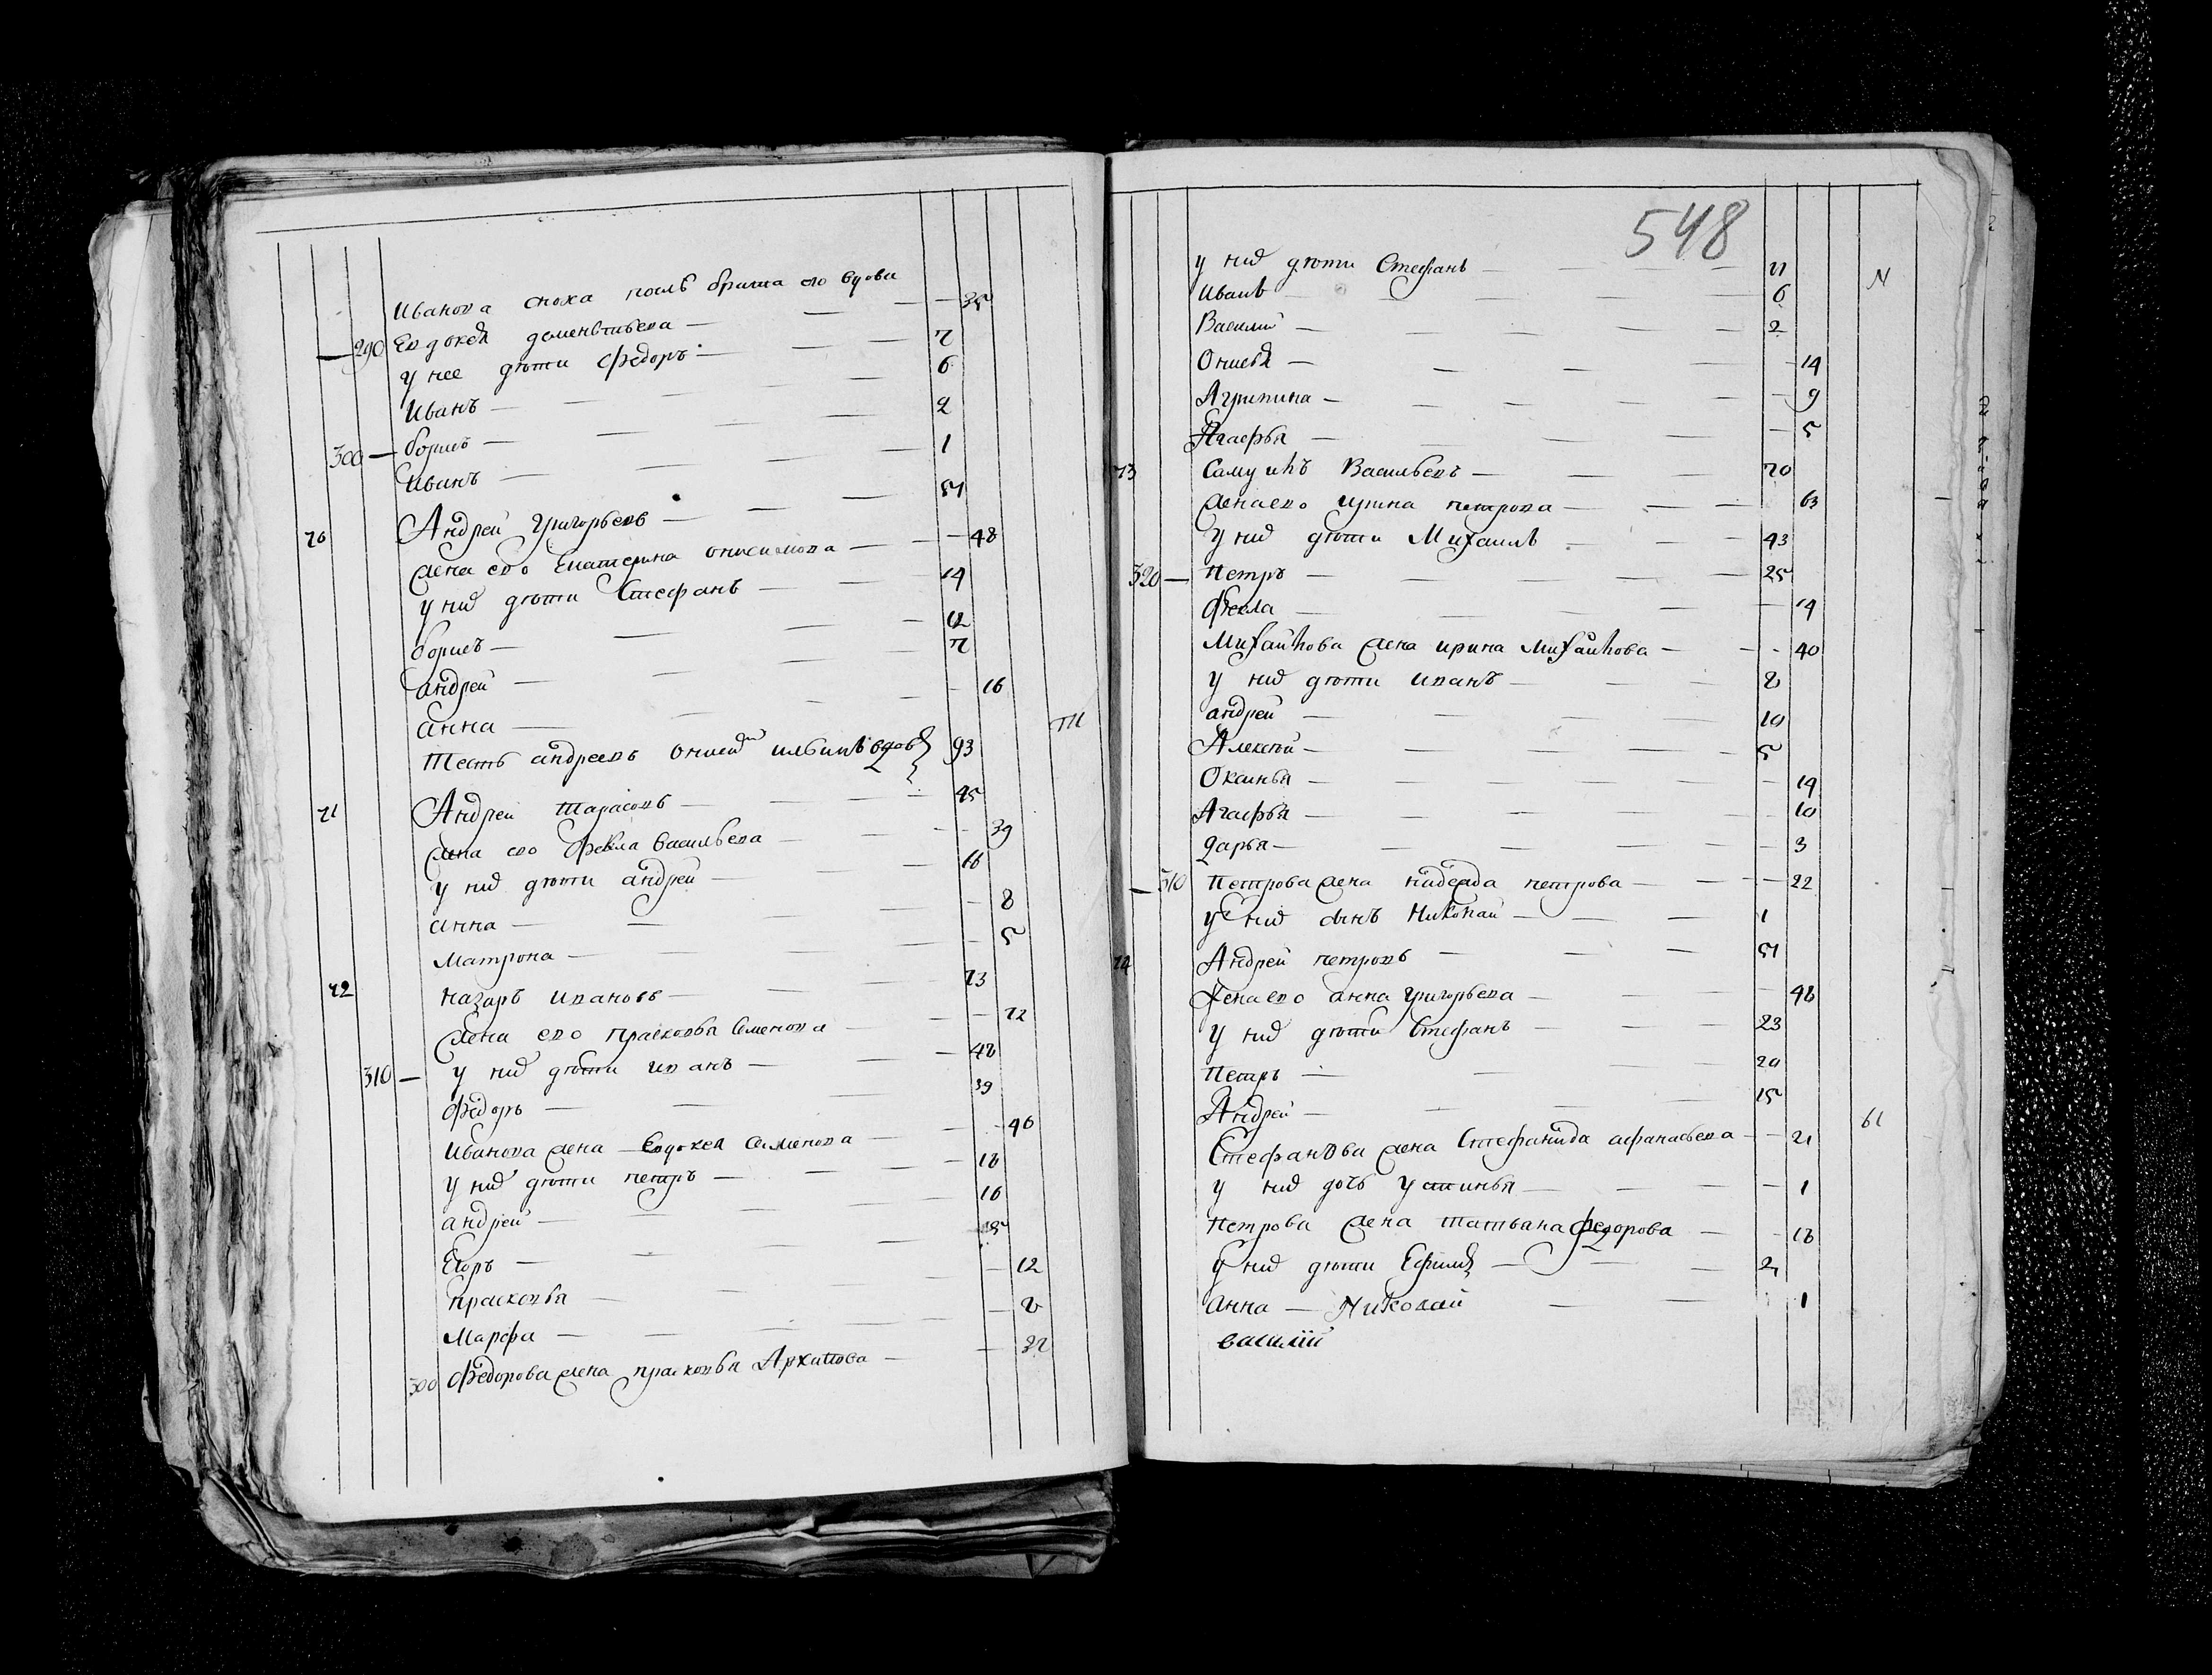 Иванова сноха послѣ брата его вдова
290 Евдокея дементьева 35
у нее дѣти Федоръ 7
Иванъ 6
300 борисъ 2
Иванъ 1
70 Андрей Григорьевъ 51
жена ево Екатерина онисимова 48
у них дѣти Стефанъ 14
борисъ 12
андрей 7
анна 16
Тесть андреевъ онисим ильинъ вдовъ 93
71 Андрей Тарасовъ 45
жена ево Фекла васильева 39
у них дѣти андрей 16
анна 8
Матрона 5
72 назаръ ивановъ 73
жена ево Прасковья Семенова 72
310 у них дѣти иванъ 48
Федоръ 39
Иванова жена Евдокея Семенова 46
у них дѣти петръ 18
андрей 16
Егоръ 15
прасковья 12
Марфа 8
300 Федорова жена прасковья Архипова 32
548
у них дѣти Стефанъ 11
Иванъ 6
Василий 2
Онисья 14
Агрипина 9
Агафья 5
73 Самуилъ Васильевъ 70
жена ево ирина петрова 63
у них дѣти Михаилъ 43
320 Петръ 25
Фекла 14
Михайлова жена ирина Михайлова 40
у них дѣти иванъ 8
андрей 10
Алексей 5
Оксинья 14
Агафья 10
дарья 3
310 Петрова жена надежда петрова 22
у них сынъ Николай 1
74 Андрей петровъ 51
Жена ево анна Григорьева 48
у них дѣти Стефанъ 23
Петръ 20
Андрей 15
Стефанова жена Стефанида афанасьева 21
у них дочь устинья 1
Петрова жена татьана федорова 18
у них дѣти Ефимъ 2
анна — Николай 1
василий